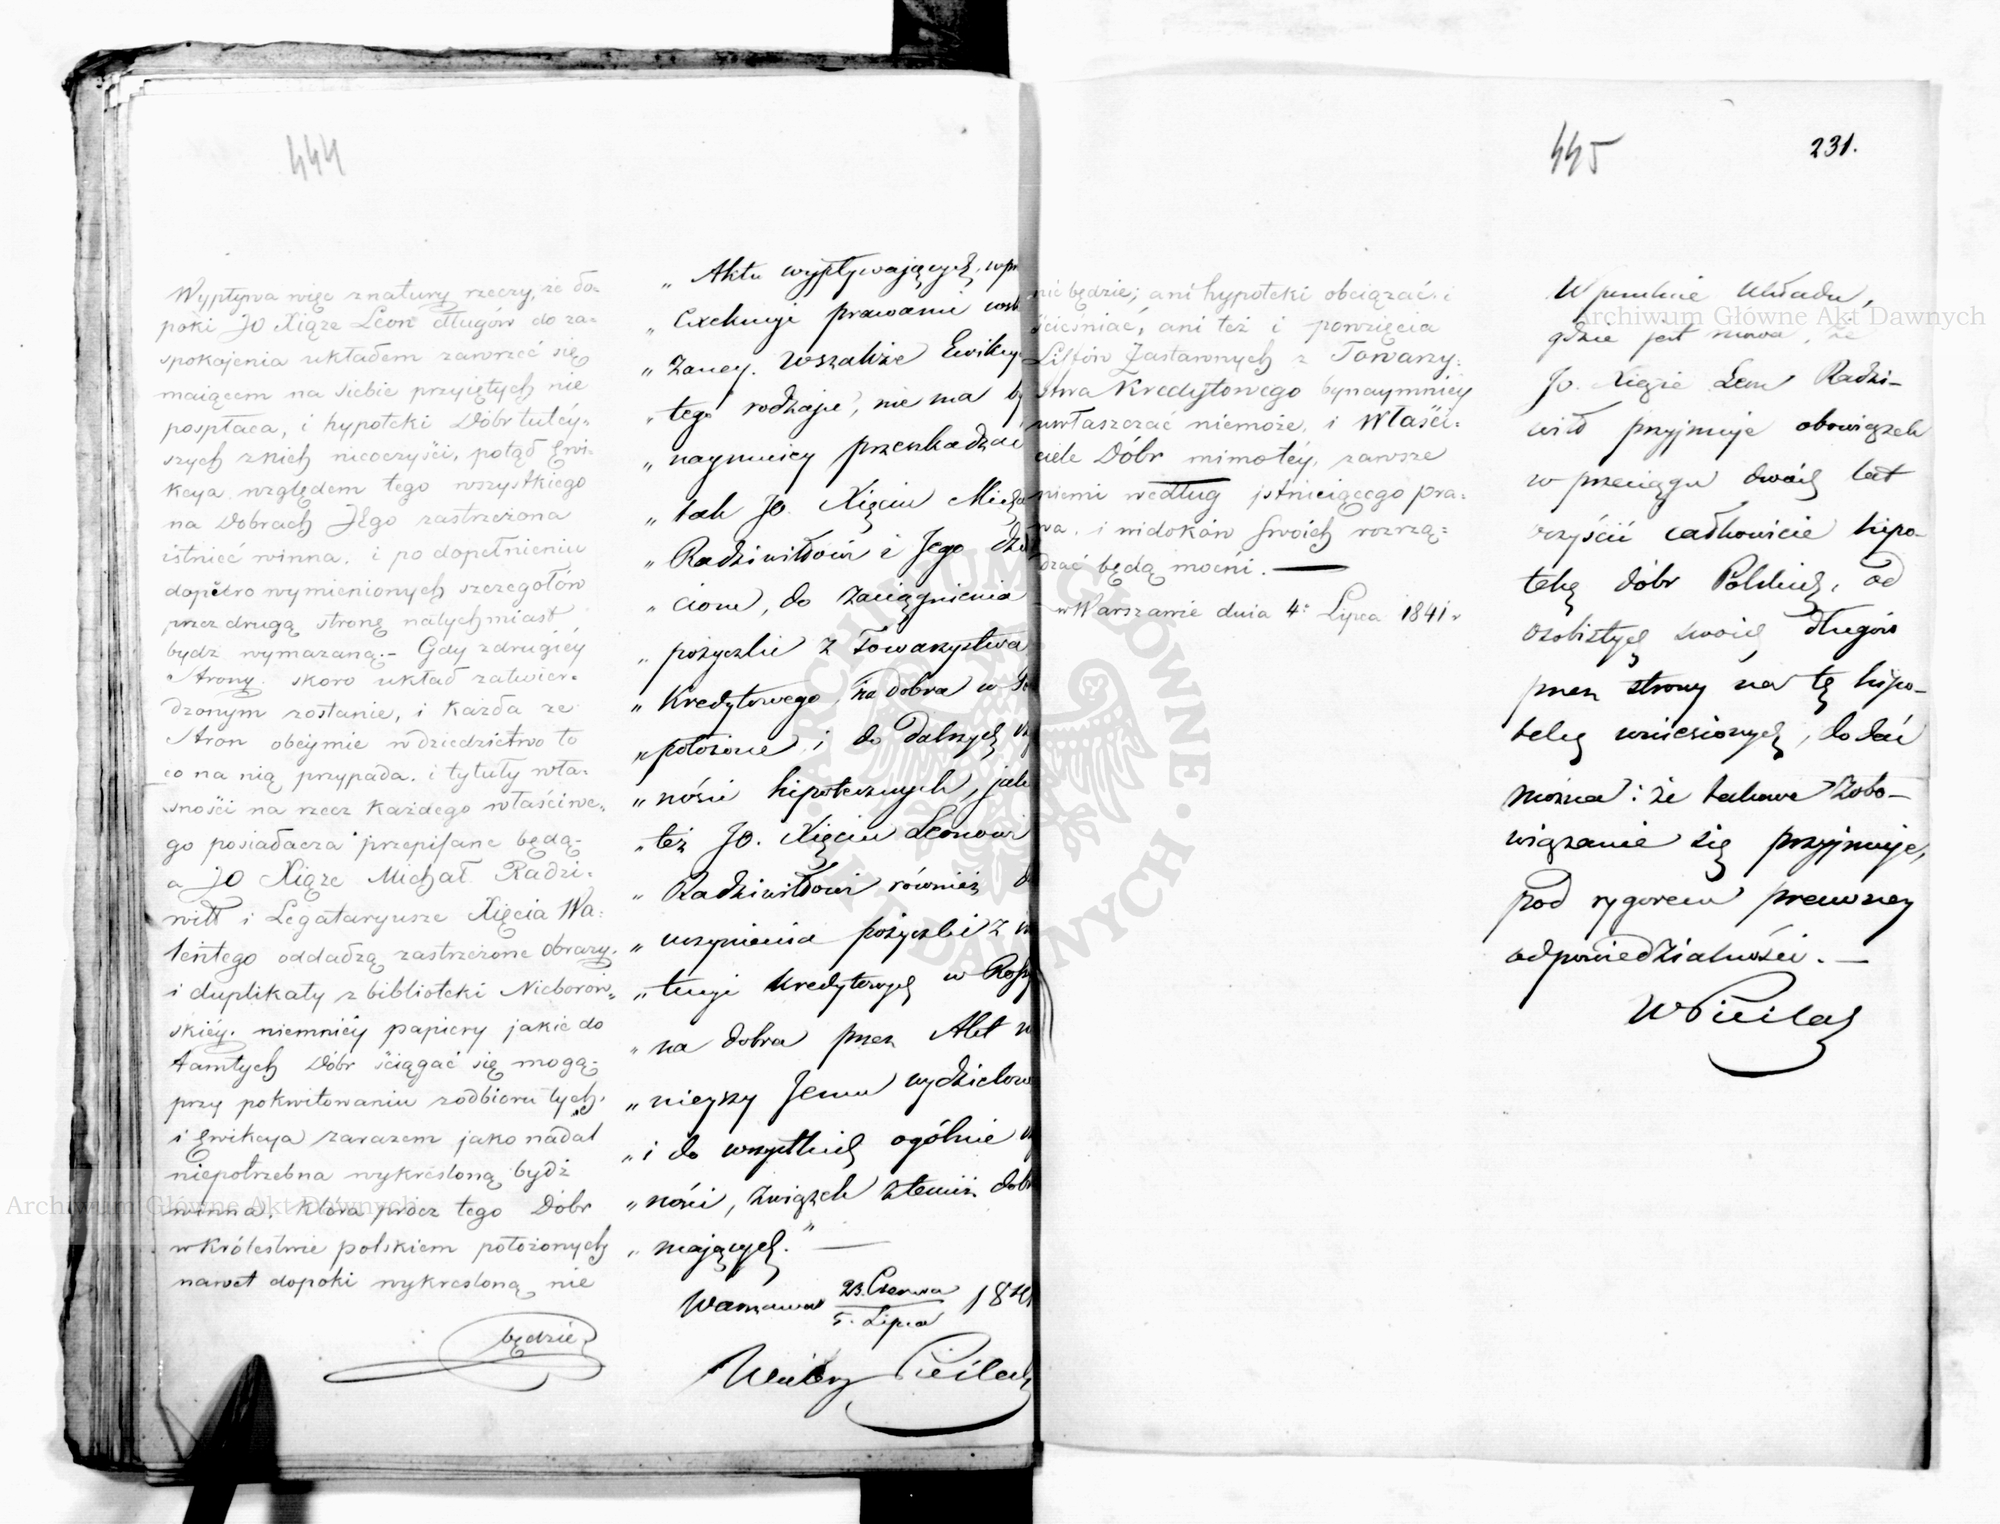 444
Wypływa więc z natury rzeczy, że do=
poki JO Xiąże Leon długów do za=
spokojenia układem zawrzeć się
maiącem na siebie przyiętych nie
pospłaca, i hypoteki Dóbr tutéy=
szych z nich nieoczyści, potąd Ewi=
kcya względem tego wszystkiego
na Dobrach JEgo zastrzeżona
istnieć winna, i po dopełnieniu
dopiéro wymienionych szczegołów
przez drugą stronę natychmiast
bydź wymazaną.– Gdy z drugiéy
Strony skoro układ zatwier=
dzonym zostanie, i Każda ze
Stron obeymie w dziedzictwo to
co na nią przypada, i tytuły wła=
sności na rzecz Każdego właściwe=
go posiadacza przepisane będą=
a JO Xiąże Michał Radzi=
wiłł i Legataryusze Xięcia Wa=
lentego oddadzą zastrzeżone Obrazy,
i duplikaty z biblioteki Nieborow=
skiéy, niemniéy papiery jakie do
tamtych Dóbr ściągać się mogą=
przy pokwitowaniu z odbioru tych,
i Ewikcya zarazem jako nadal
niepotrzebna wykreśloną bydź
winna, która prócz tego Dóbr
w Królestwie polskiem położonych
nawet dopoki wykresloną nie
będzie
„ Aktu wypływających, wpr
„ Exekucji prawami wska
„ zaney. Wszakże Ewikcy
„ tego rodzaju, nie ma by
„ naymniey przeszkadzać
„ tak JO. Xięciu Micha
„ Radziwiłłowi i Jego
„ ciom, do zaciągnienia
„ pożyczki z Towarzystwa
„ Kredytowego na dobra w
„ położone, i do dalszych
„ ności hipotecznych, jak
„ też JO. Xięciu Leonowi
„ Radziwiłłowi również
„ uczynienia pożyczki z
„ tucyi Kredytowych w
„ na dobra przez Akt
„ nieyszy Jemu wydzielone
„ i do wszystkich ogólnie
„ ności, związek z temiż
„ mających.” —
Warszawa 23. Czerwca / 5. Lipca 1841
445
231.
nie będzie; ani hypoteki obciążać i
ścieśniać, ani też i powzięcia
Listów Zastawnych z Towarzy=
stwa Kredytowego bynaymniéy
uwłaszczać niemoże, i Właści=
ciele Dóbr mimo téy, zawsze
niemi według jstnieiącego pra=
wa, i widoków swoich rozrzą=
dzać będą mocni. —
w Warszawie dnia 4º Lipca 1841 r
W punkcie Układu,
gdzie jest mowa, że
Jo. Xiąże Leon Radzi–
wiłł przyjmuje obowiązek
w przeciągu dwóch lat
oczyścić całkowicie hipo–
tekę dóbr Polskich, od
osobistych swoich długów
przez strony na tę hipo–
tekę wniesionych, dodać
można: że takowe Zobo–
wiązanie się przyjmuje,
pod rygorem prawney
odpowiedzialności. —
Archiwum Główne Akt Dawnych
Archiwum Główne Akt Dawnych
ARCHIWUM GŁÓWNE AKT DAWNYCH